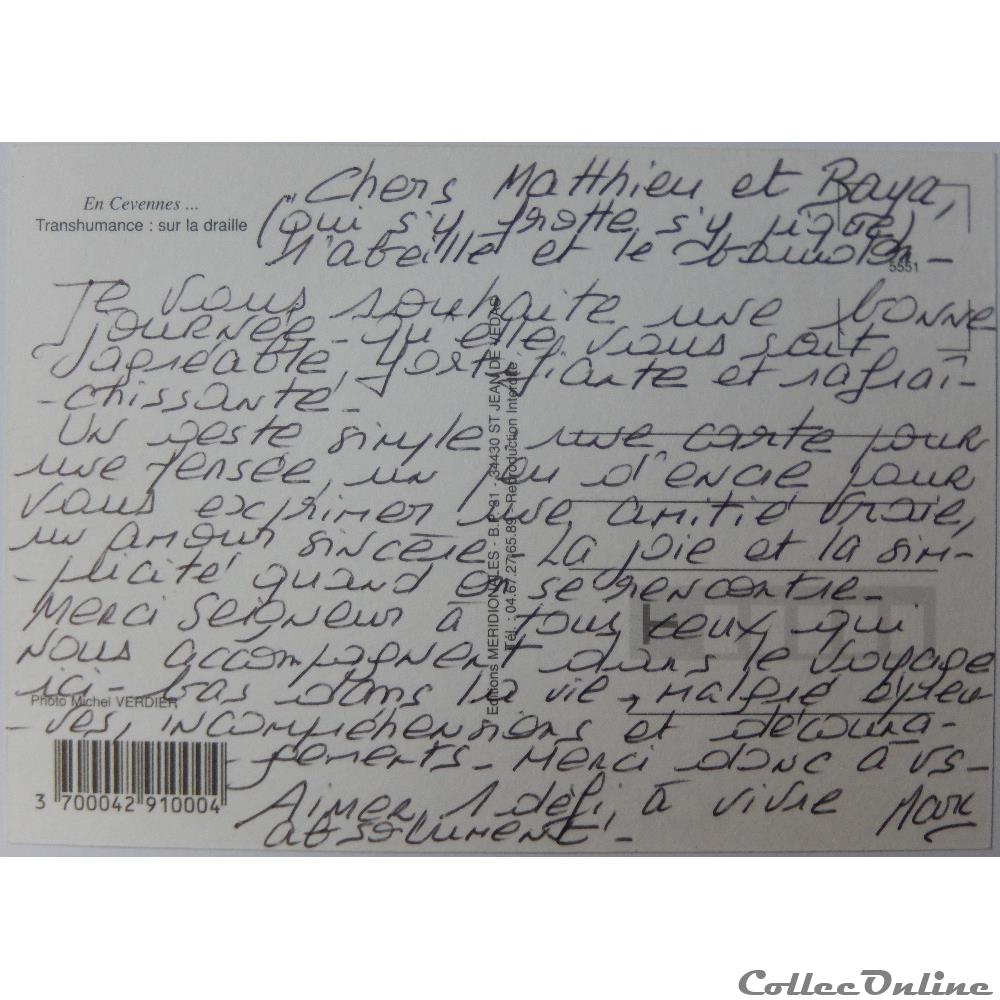 En Cevennes ...
Transhumance : sur la draille
Chers Matthieu et Baya,
(qui s'y frotte s'y pique)
l'abeille et le
5551
Je vous souhaite une bonne
journée - qu'elle vous soit
agréable, fortifiante et rafraî-
-chissante -
Un geste simple une carte pour
une pensée, un peu d'encre pour
vous exprimer une amitié vraie,
un amour sincère - La joie et la sim-
-plicité quand on se rencontre -
Merci Seigneur à tous ceux qui
nous accompagnent dans le voyage
ici-bas dans la vie, malgré épreu
-ves, incompréhensions et découra-
-gements - Merci donc à vs -
Aimer 1 défi à vivre
absolument -
Marc
Editions MERIDIONALES - B.P. 31 - 34430 ST JEAN DE VEDAS
Tél. : 04.67.27.65.89 - Reproduction Interdite
Photo Michel VERDIER
3 700042 910004
CollecOnline